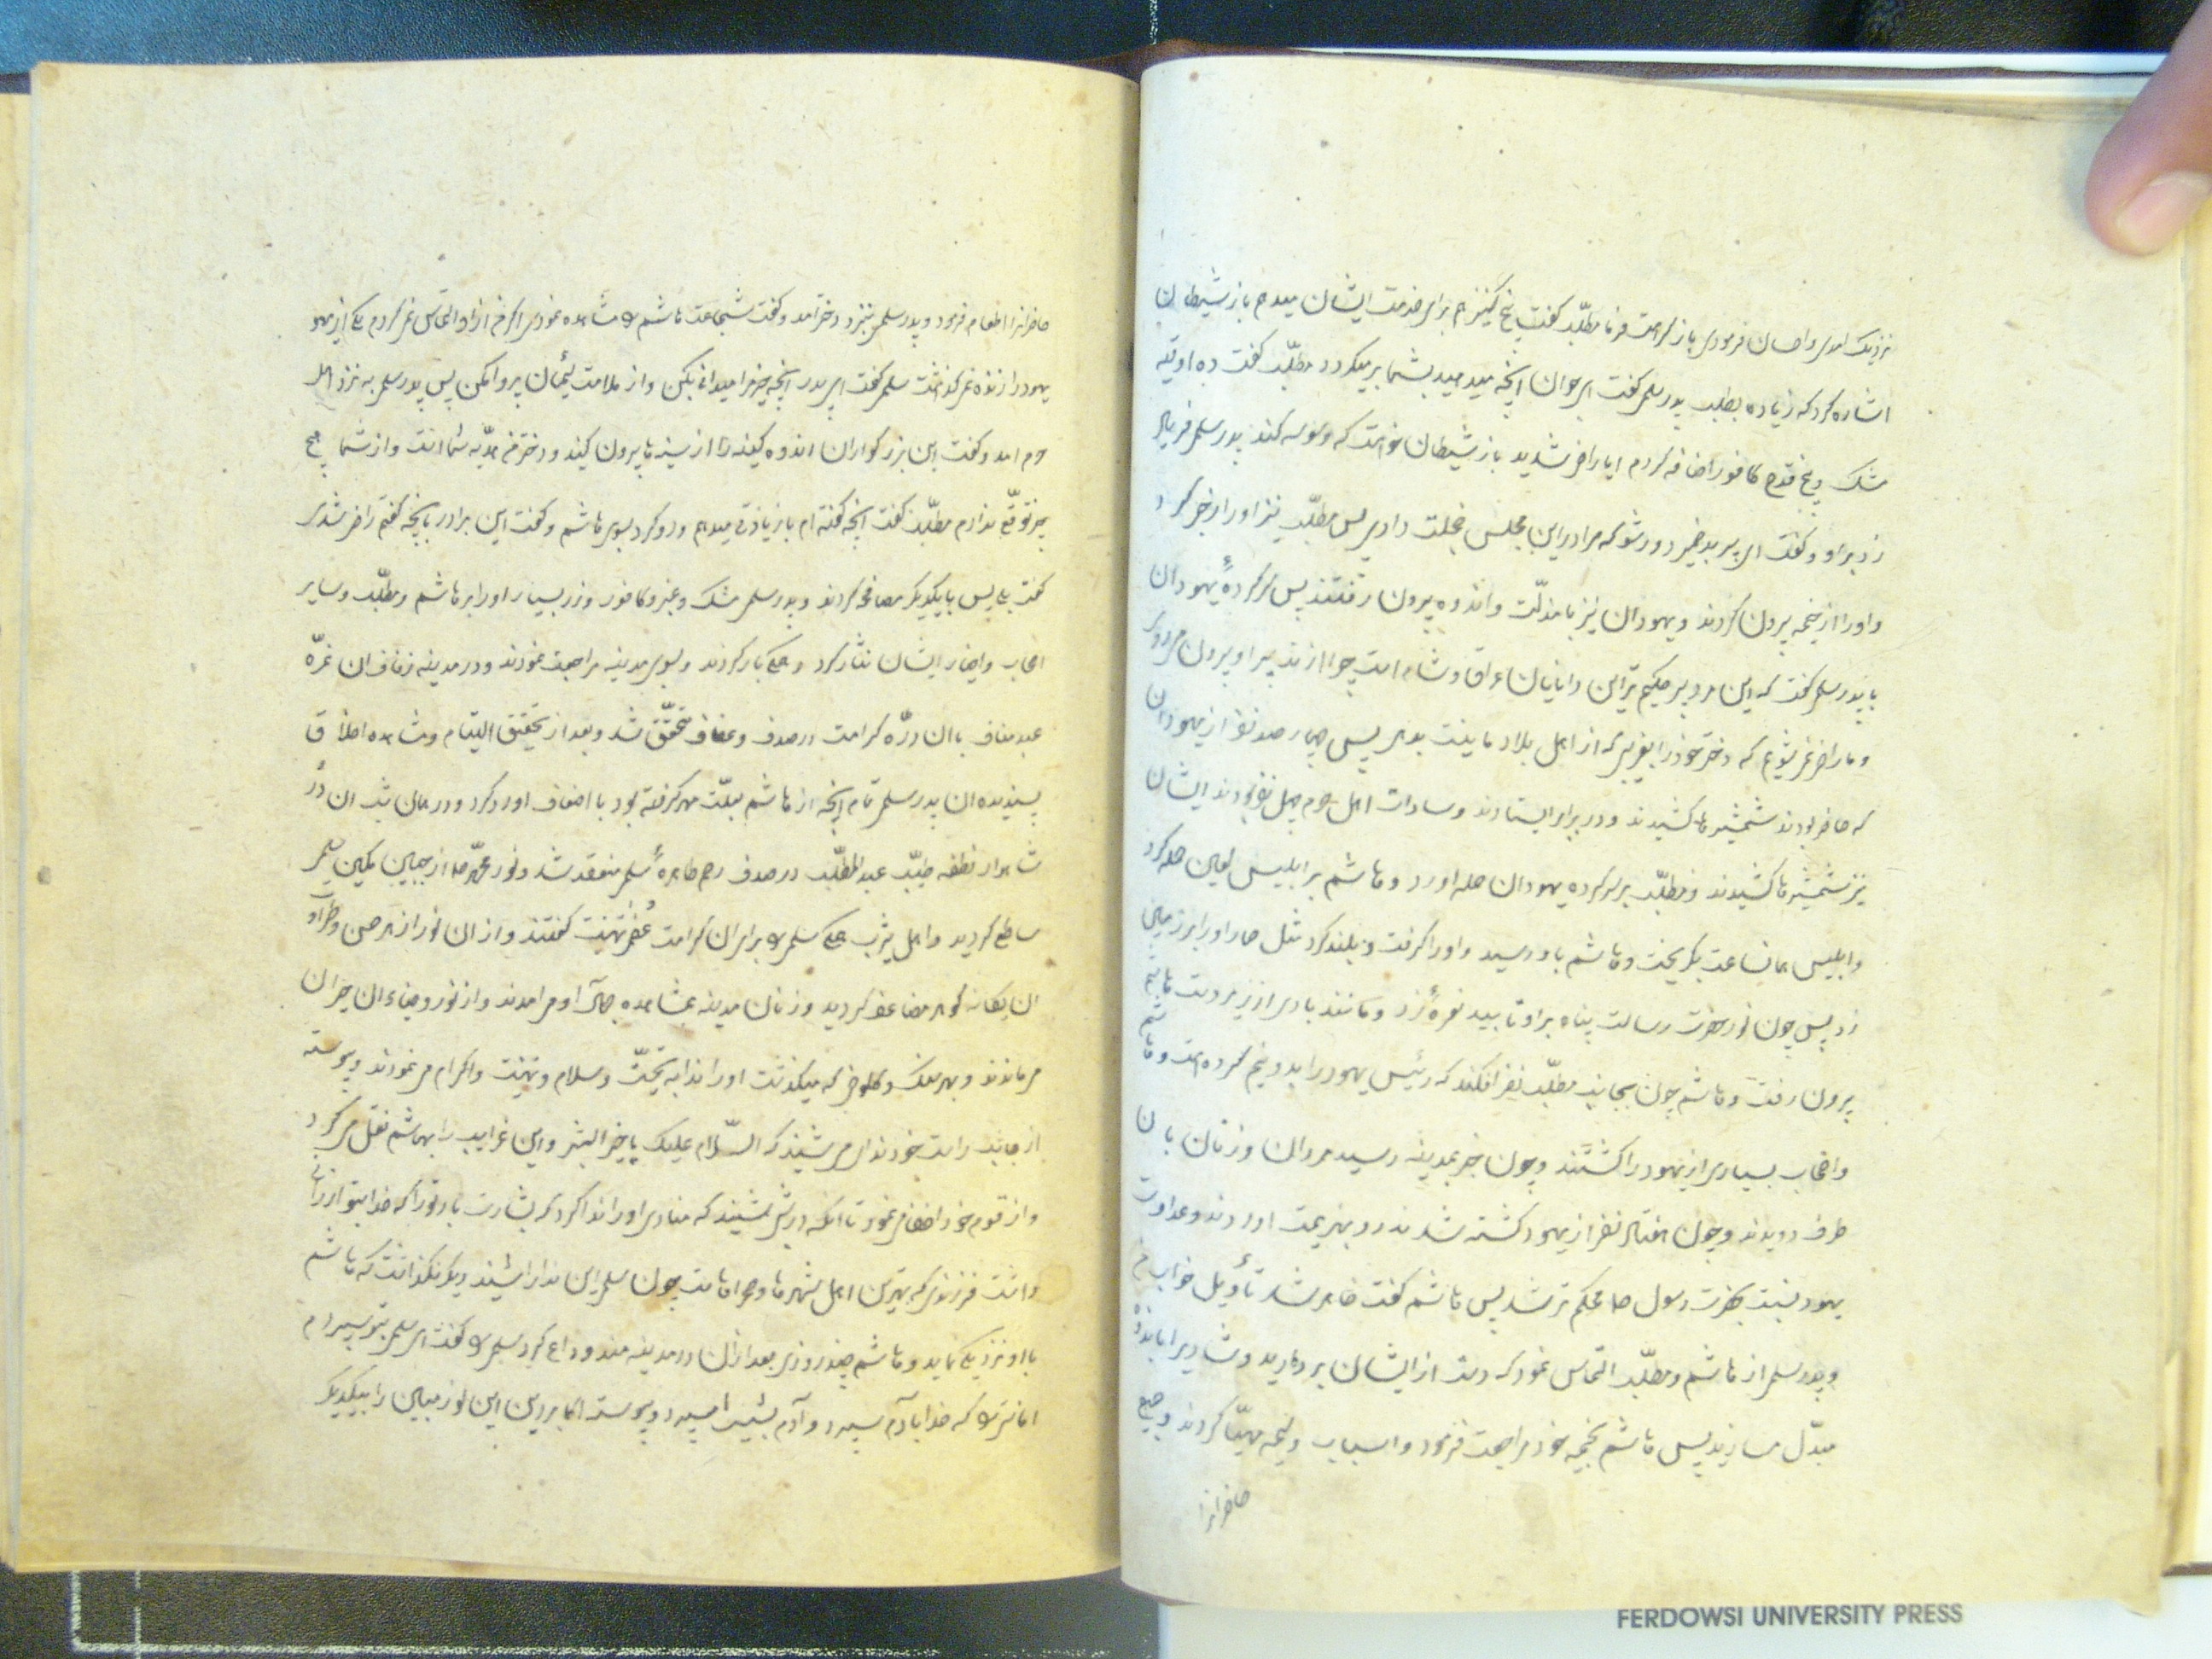 نزدیک امدی و احسان فرمودی باز کرامت فرما مطلّب کفت پنج کنیز هم برای خدمت ایشان میدهم باز شیطان
اشاره کرد که زیاده بطلب پدر سلمی کفت ای جوان انچه میدهید بشما برمیکردد مطلّب کفت ده اوقیه
مشک و پنج قدح کافور اضافه کردم ایا راضی شدید باز شیطان خواست که وسوسه کند پدر سلمی فریاد
زد بر او و کفت ای پیر بدضمیر دور شو که مرا در این مجلس خجلت دادی پس مطلّب نیز او را زجر کرد
و او را از خیمه بیرون کردند و یهودان نیز با مذلّت و اندوه بیرون رفتند پس سرکردهٔ یهودان
با پدر سلمی کفت که این مرد پیر حکیم ترین دانایان عراق و شام است چرا از تدبیر او بیرون میروی
و ما راضی نمیشویم که دختر خود را بغریبی که از اهل بلاد ما نیست بدهی پس چهار صد نفر از یهودان
که حاضر بودند شمشیرها کشیدند و در برابر ایستادند و سادات اهل حرم چهل نفر بودند ایشان
نیز شمشیرها کشیدند و مطلّب بر سرکرده یهودان حمله اورد و هاشم بر ابلیس لعین حمله کرد
و ابلیس همانساعت بکریخت و هاشم باو رسید و او را کرفت و بلند کرد مثل حصار او را بر زمین
زد پس چون نور حضرت رسالت پناه بر او تابید نعرهٔ زد و مانند بادی از زیر دست هاشم
بیرون رفت و هاشم چون بجانب مطلّب نظر افکند که رئیس یهود را بدو نیم کرده است و هاشم
و اصحاب بسیاری از یهود را کشتند و چون خبر بمدینه رسید مردان و زنان بان
طرف دویدند و چون هفتاد نفر از یهود کشته شدند رو بهزیمت اوردند و عداوت
یهود نسبت بحضرت رسول ص محکم تر شد پس هاشم کفت ظاهر شد تأویل خواب من
و پدر سلمی از هاشم و مطلّب التماس نمود که دست از ایشان بردارید و شادی را باندوه
مبدّل مسازید پس هاشم بخیمه خود مراجعت فرمود و اسباب ولیمه مهیّا کردند و جمیع
حاضرانرا
حاضرانرا اطعام فرمود و پدر سلمی بنزد دختر آمد و کفت شجاعت هاشم را مشاهده نمودی اکر من از او التماس نمیکردم یکی از
یهود را زنده نمیکذاشت سلمی کفت ای پدر انچه خیر مرا میدانی بکن و از ملامت لئیمان پروا مکن پس پدر سلمی به نزد اهل
حرم امد و کفت این بزرکواران اندوه کینه را از سینه ها بیرون کنید و دختر من هدیّه شما است و از شما هیچ
چیز توقّع ندارم مطلّب کفت انچه کفته ام باز زیادتی میدهم و رو کرد بسوی هاشم و کفت این برادر بانچه کفتم راضی شدی
کفت بلی پس با یکدیکر مصافحه کردند و پدر سلمی مشک و عنبر و کافور و زر بسیار اورد بر هاشم و مطلّب و سایر
اصحاب و انصار ایشان نثار کرد و همکی بار کردند و بسوی مدینه مراجعت نمودند و در مدینه زفاف ان غرّه
عبد مناف با ان درّه کرامت در صدف و عفاف محقّق شد و بعد از تحقیق التیام و مشاهده اخلاق
پسندیده ان پدر سلمی تمام انچه از هاشم بعلّت مهر کرفته بود با اضعاف اورد کرد و در همان شب ان درّ
شاهوار نطفه طیّب عبد المطّلب در صدف رحم طاهرهٔ سلمی منعقد شد و نور محمّد ص از جبین مبین سلمی
ساطع کردید و اهل یثرب همکی سلمی را برای ان کرامت عظمی تهنیت کفتند و از ان نور ازهر حسن و طراوت
ان یکانه کوهر مضاعف کردید و زنان مدینه بمشاهده جمال او می امدند و از نور و ضیاء ان حیران
میماندند و بهر سنک و کلوخی که میکذشت او را ندا به تحیّت و سلام و تهنیت و اکرام مینمودند و پیوسته
از جانب راست خود ندائی می شنید که السّلام علیک یا خیر البشر و این غرایب را بهاشم نقل میکرد
و از قوم خود اخفا مینمود تا انکه در شبی شنید که منادی او را ندا کرد که بشارت باد تو را که خدا بتو ارزانی
داشت فرزندی که بهترین اهل شهرها و صحراها است چون سلمی این ندا را شنید دیکر نکذاشت که هاشم
با او نزدیکی نماید و هاشم چند روزی بعد از ان در مدینه ماند و وداع کرد سلمی را و کفت ای سلمی بتو سپردم
امانتی را که خدا بآدم سپرد و آدم بشیث سپرد و پیوسته اکابر دین این نور مبین را بیکدیکر
FERDOWSI UNIVERSITY PRESS